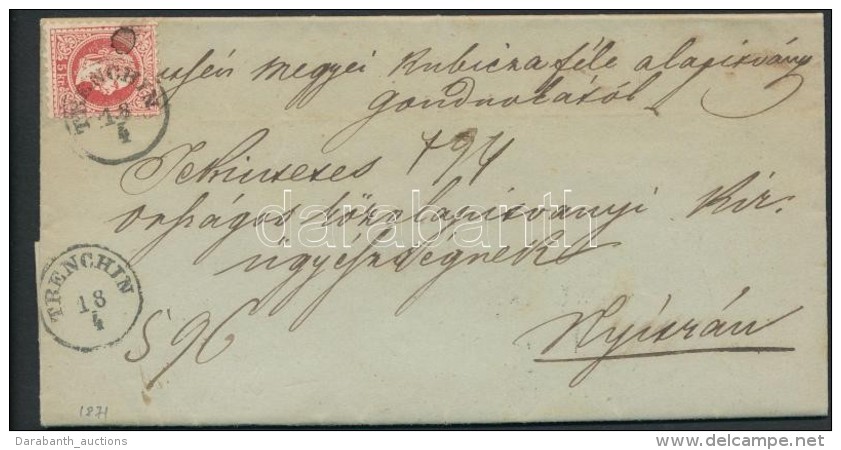 5 kr
TRENCHIN
18
4
megyei Kubicza féle alapitvány
gondnokától
Tekintetes 794
országos közalapitványi Kir:
ügyészségnek
darabanth
TRENCHIN
18
4
Nyitrán
1871
Darabanth_auctions
www.delcampe.net